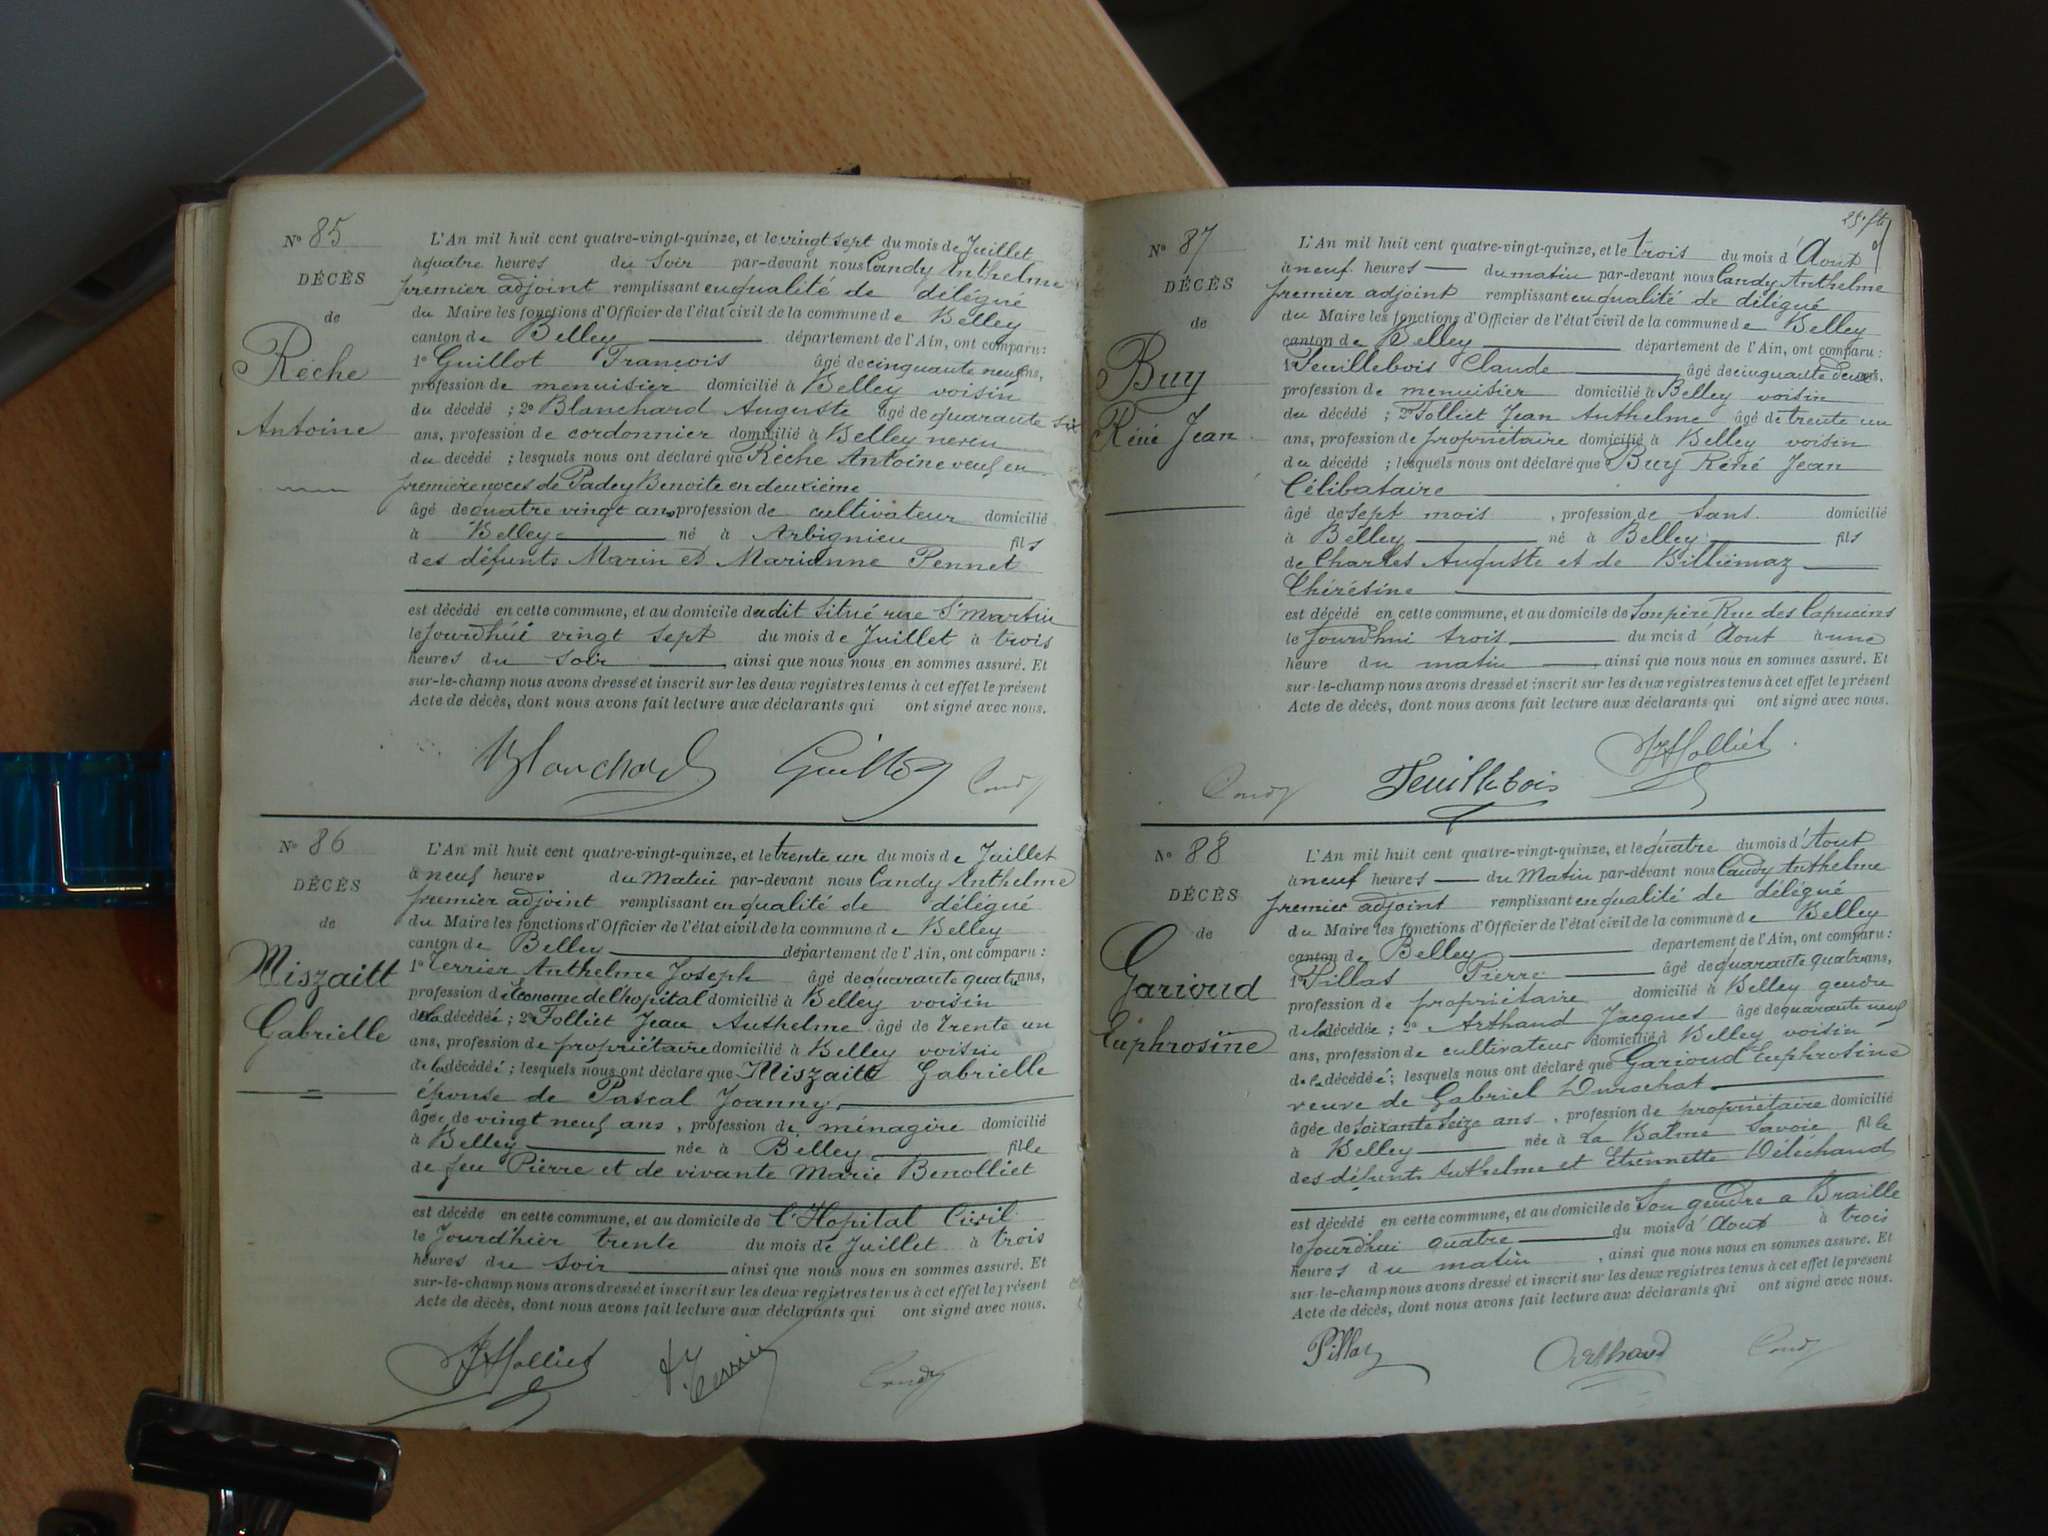 No 85
DÉCÈS
de
Réche
Antoine
L'An mil huit cent quatre-vingt-quinze, et le vingt sept du mois de Juillet
à quatre heures du soir par-devant nous Candy Anthelme
premier adjoint remplissant en qualité de délégué
du Maire les fonctions d'Officier de l'état civil de la commune de Belley
canton de Belley département de l'Ain, ont comparu :
1º Guillot François âgé de cinquante neuf ans,
profession de menuisier domicilié à Belley voisin
du décédé ; 2º Blanchard Auguste âgé de quarante six
ans, profession de cordonnier domicilié à Belley neveu
du décédé ; lesquels nous ont déclaré que Réche Antoine veuf en
premiere noces de Padey Benoite en deuxième
âgé de quatre vingt ans profession de cultivateur domicilié
à Belley né à Arbignieu fils
des défunts Marin et Marianne Pennet
est décédé en cette commune, et au domicile dudit situé rue St Martin
le Jourdhui vingt sept du mois de Juillet à trois
heures du soir ainsi que nous nous en sommes assuré. Et
sur-le-champ nous avons dressé et inscrit sur les deux registres tenus à cet effet le présent
Acte de décès, dont nous avons fait lecture aux déclarants qui ont signé avec nous.
Blanchard Guillot Candy
No 86
DÉCÈS
de
Miszaitt
Gabrielle
L'An mil huit cent quatre-vingt-quinze, et le trente un du mois de Juillet
à neuf heures du Matin par-devant nous Candy Anthelme
premier adjoint remplissant en qualité de délégué
du Maire les fonctions d'Officier de l'état civil de la commune de Belley
canton de Belley département de l'Ain, ont comparu :
1º Terrier Anthelme Joseph âgé de quarante quatre ans,
profession d'Econome de l'hopital domicilié à Belley voisin
de la décédée ; 2º Folliet Jean Anthelme âgé de trente un
ans, profession de propriétaire domicilié à Belley voisin
de la décédée ; lesquels nous ont déclaré que Miszaitt Gabrielle
épouse de Pascal Joanny
âgée de vingt neuf ans, profession de ménagère domicilié
à Belley née à Belley fille
de feu Pierre et de vivante Marie Benolliet
est décédé en cette commune, et au domicile de l'Hopital Civil
le Jourd'hier trente du mois de Juillet à trois
heures du soir ainsi que nous nous en sommes assuré. Et
sur-le-champ nous avons dressé et inscrit sur les deux registres tenus à cet effet le présent
Acte de décès, dont nous avons fait lecture aux déclarants qui ont signé avec nous.
JAFolliet Terrier Candy
No 87
DÉCÈS
de
Buy
Réné Jean
L'An mil huit cent quatre-vingt-quinze, et le trois du mois d'Aout
à neuf heures du matin par-devant nous Candy Anthelme
premier adjoint remplissant en qualité de délégué
du Maire les fonctions d'Officier de l'état civil de la commune de Belley
canton de Belley département de l'Ain, ont comparu :
1º Feuillebois Claude âgé de cinquante deux ans,
profession de menuisier domicilié à Belley voisin
du décédé ; 2º Folliet Jean Anthelme âgé de trente un
ans, profession de propriétaire domicilié à Belley voisin
du décédé ; lesquels nous ont déclaré que Buy Réné Jean
Célibataire
âgé de sept mois, profession de sans domicilié
à Belley né à Belley fils
de Charles Auguste et de Billiémaz
Thérésine
est décédé en cette commune, et au domicile de son père Rue des Capucins
le Jourdhui trois du mois d'Aout à une
heure du matin ainsi que nous nous en sommes assuré. Et
sur-le-champ nous avons dressé et inscrit sur les deux registres tenus à cet effet le présent
Acte de décès, dont nous avons fait lecture aux déclarants qui ont signé avec nous.
Candy Feuillebois JAFolliet
No 88
DÉCÈS
de
Garioud
Euphrosine
L'An mil huit cent quatre-vingt-quinze, et le quatre du mois d'Aout
à neuf heures du Matin par-devant nous Candy Anthelme
premier adjoint remplissant en qualité de délégué
du Maire les fonctions d'Officier de l'état civil de la commune de Belley
canton de Belley département de l'Ain, ont comparu :
1º Pillas Pierre âgé de quarante quatre ans,
profession de propriétaire domicilié à Belley gendre
de la décédée ; 2º Arthaud Jacques âgé de quarante neuf
ans, profession de cultivateur domicilié à Belley voisin
de la décédée ; lesquels nous ont déclaré que Garioud Euphrosine
veuve de Gabriel Durochat
âgée de soixante seize ans, profession de propriétaire domicilié
à Belley née à La Balme Savoie fille
des défunts Anthelme et Etiennette Déléchaud
est décédé en cette commune, et au domicile de Son gendre a Braille
le Jourdhui quatre du mois d'Aout à trois
heures du matin, ainsi que nous nous en sommes assuré. Et
sur-le-champ nous avons dressé et inscrit sur les deux registres tenus à cet effet le présent
Acte de décès, dont nous avons fait lecture aux déclarants qui ont signé avec nous.
Pillas Arthaud Candy